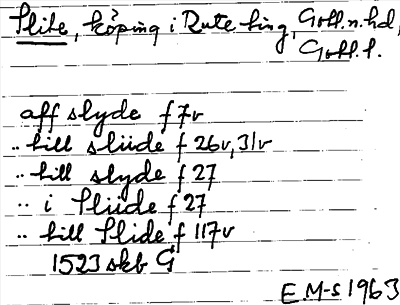 Slite, köping i Rute ting, Gotl.n.hd,
Gotl.l.
aff slyde f 7v
.. till slüde f 26v, 31v
.. till slyde f 27
.. i Slüde f 27
.. till Slide f 117v
1523 skb G
E.M-S 1963